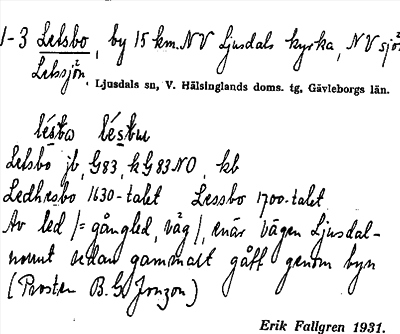 1-3 Letsbo, by 15 km. NV Ljusdals kyrka, NV sjön
Letssjön. Ljusdals sn, V. Hälsinglands doms. tg, Gävleborgs län.
Letsbo jb, G83, kG83NO, kb
Ledhesbo 1630-talet Lessbo 1700-talet
Av led /= gångled, väg/, enär vägen Ljusdal-
sedan gammalt gått genom byn
(Prosten B. G. Jonzon)
Erik Fallgren 1931.